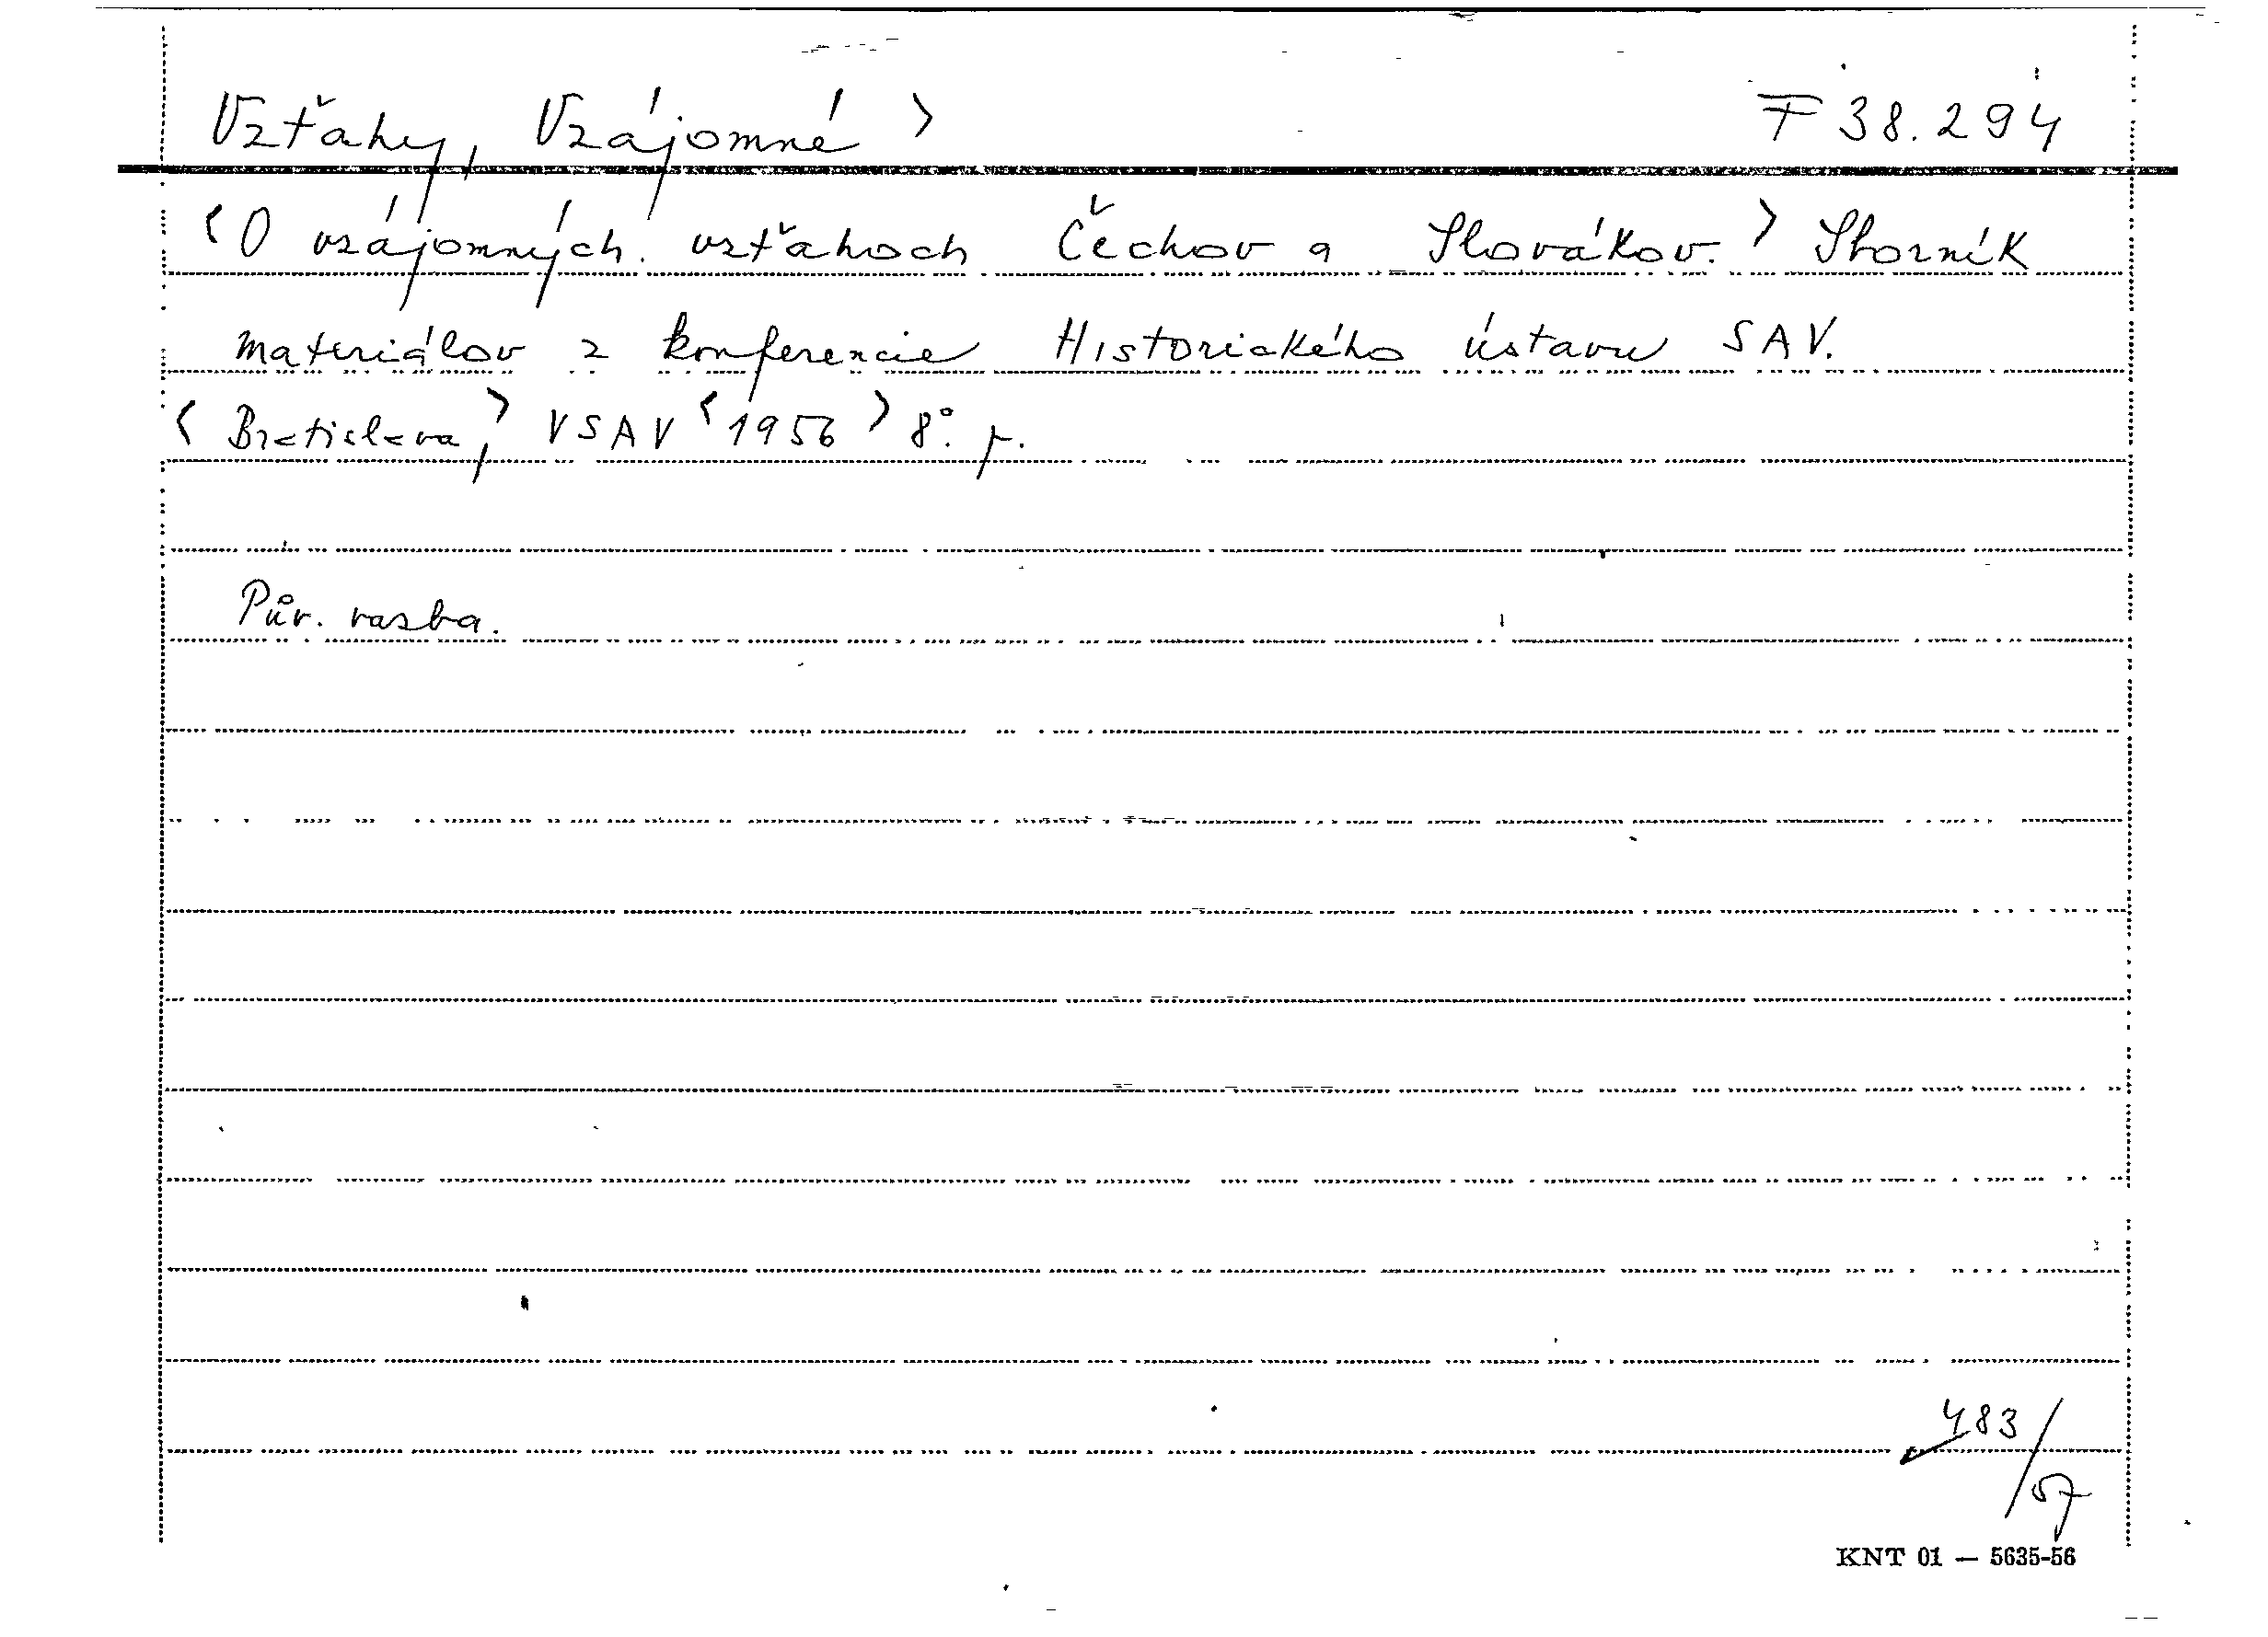 Vzťahy, Vzájomné > F 38.294
<O vzájomných vzťahoch Čechov a Slovákov.> Sborník
materiálov z konferencie Historického ústavu SAV.
<Bratislava,> VSAV <1956> 8°. p.
Pův. vazba.
483/57
KNT 01 — 5635-56